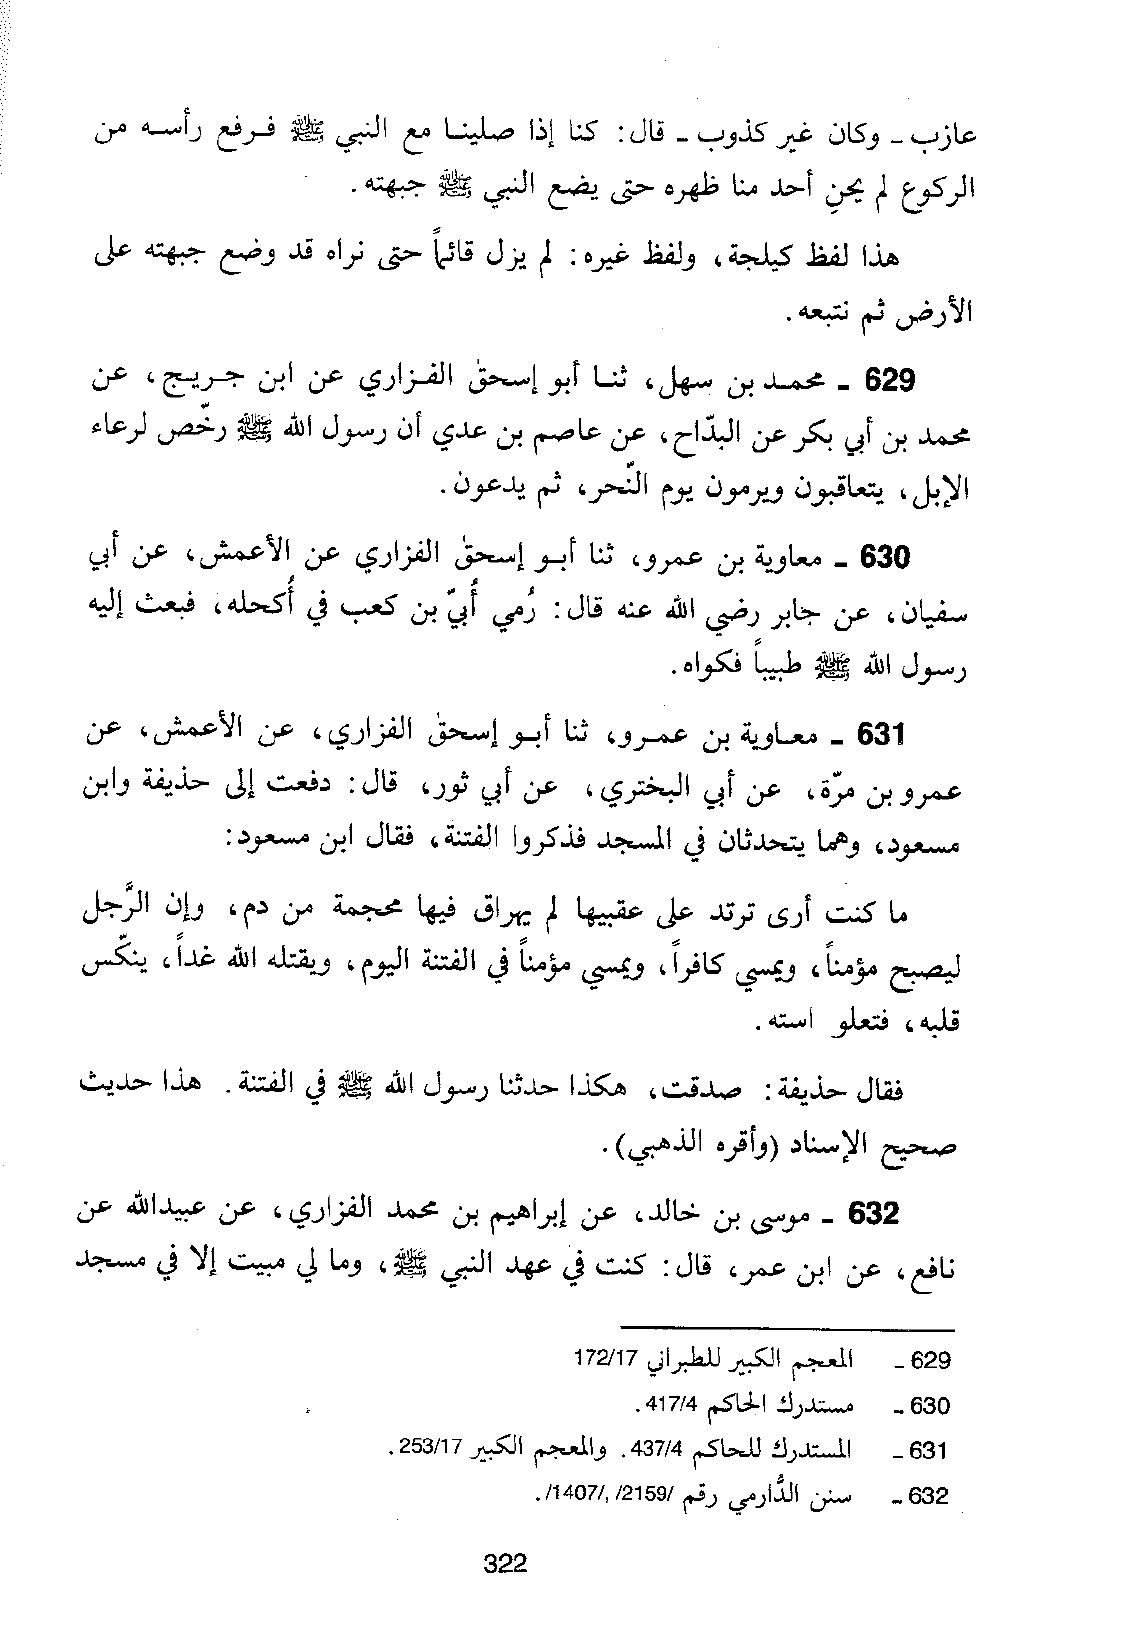 عازب ـ وكان غير كذوب ـ قال: كنا إذا صلينا مع النبي ﷺ فرفع رأسه من
الركوع لم يحنِ أحد منا ظهره حتى يضع النبي ﷺ جبهته.
هذا لفظ كيلجة، ولفظ غيره: لم يزل قائماً حتى نراه قد وضع جبهته على
الأرض ثم نتبعه.
629 ـ محمد بن سهل، ثنا أبو إسحق الفزاري عن ابن جريج، عن
محمد بن أبي بكر عن البدّاح، عن عاصم بن عدي أن رسول الله ﷺ رخّص لرعاء
الإبل، يتعاقبون ويرمون يوم النّحر، ثم يدعون.
630 ـ معاوية بن عمرو، ثنا أبو إسحق الفزاري عن الأعمش، عن أبي
سفيان، عن جابر رضي الله عنه قال: رُمي أُبيّ بن كعب في أُكحله، فبعث إليه
رسول الله ﷺ طبيباً فكواه.
631 ـ معاوية بن عمرو، ثنا أبو إسحق الفزاري، عن الأعمش، عن
عمرو بن مرّة، عن أبي البختري، عن أبي ثور، قال: دفعت إلى حذيفة وابن
مسعود، وهما يتحدثان في المسجد فذكروا الفتنة، فقال ابن مسعود:
ما كنت أرى ترتد على عقبيها لم يهراق فيها محجمة من دم، وإن الرَّجل
ليصبح مؤمناً، ويمسي كافراً، ويمسي مؤمناً في الفتنة اليوم، ويقتله الله غداً، ينكّس
قلبه، فتعلو استه.
فقال حذيفة: صدقت، هكذا حدثنا رسول الله ﷺ في الفتنة. هذا حديث
صحيح الإسناد (وأقره الذهبي).
632 ـ موسى بن خالد، عن إبراهيم بن محمد الفزاري، عن عبيدالله عن
نافع، عن ابن عمر، قال: كنت في عهد النبي ﷺ، وما لي مبيت إلا في مسجد
629 ـ المعجم الكبير للطبراني 172/17
630 ـ مستدرك الحاكم 417/4.
631 ـ المستدرك للحاكم 437/4. والمعجم الكبير 253/17.
632 ـ سنن الدَّارمي رقم /2159/, /1407/.
322